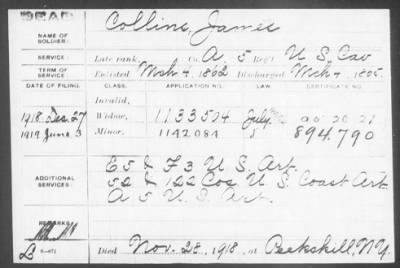 DEAD
NAME OF SOLDIER: Collins, James
SERVICE: Late rank, Co. A, 5 Reg't U.S. Cav
TERM OF SERVICE: Enlisted Mch 4, 1862 Discharged Mch 4, 1865.
DATE OF FILING. CLASS. APPLICATION NO. LAW. CERTIFICATE NO.
Invalid,
1918 Dec 27 Widow, 1133504 July
1919 June 3 Minor, 1142084 S 894.790
ADDITIONAL SERVICES: E 5 & F 3 U.S. Art.
52 & 122 Cos U.S. Coast Art
A 5 U.S. Art.
REMARKS:
Died Nov. 28, 1918, at Peekskill, N.Y.